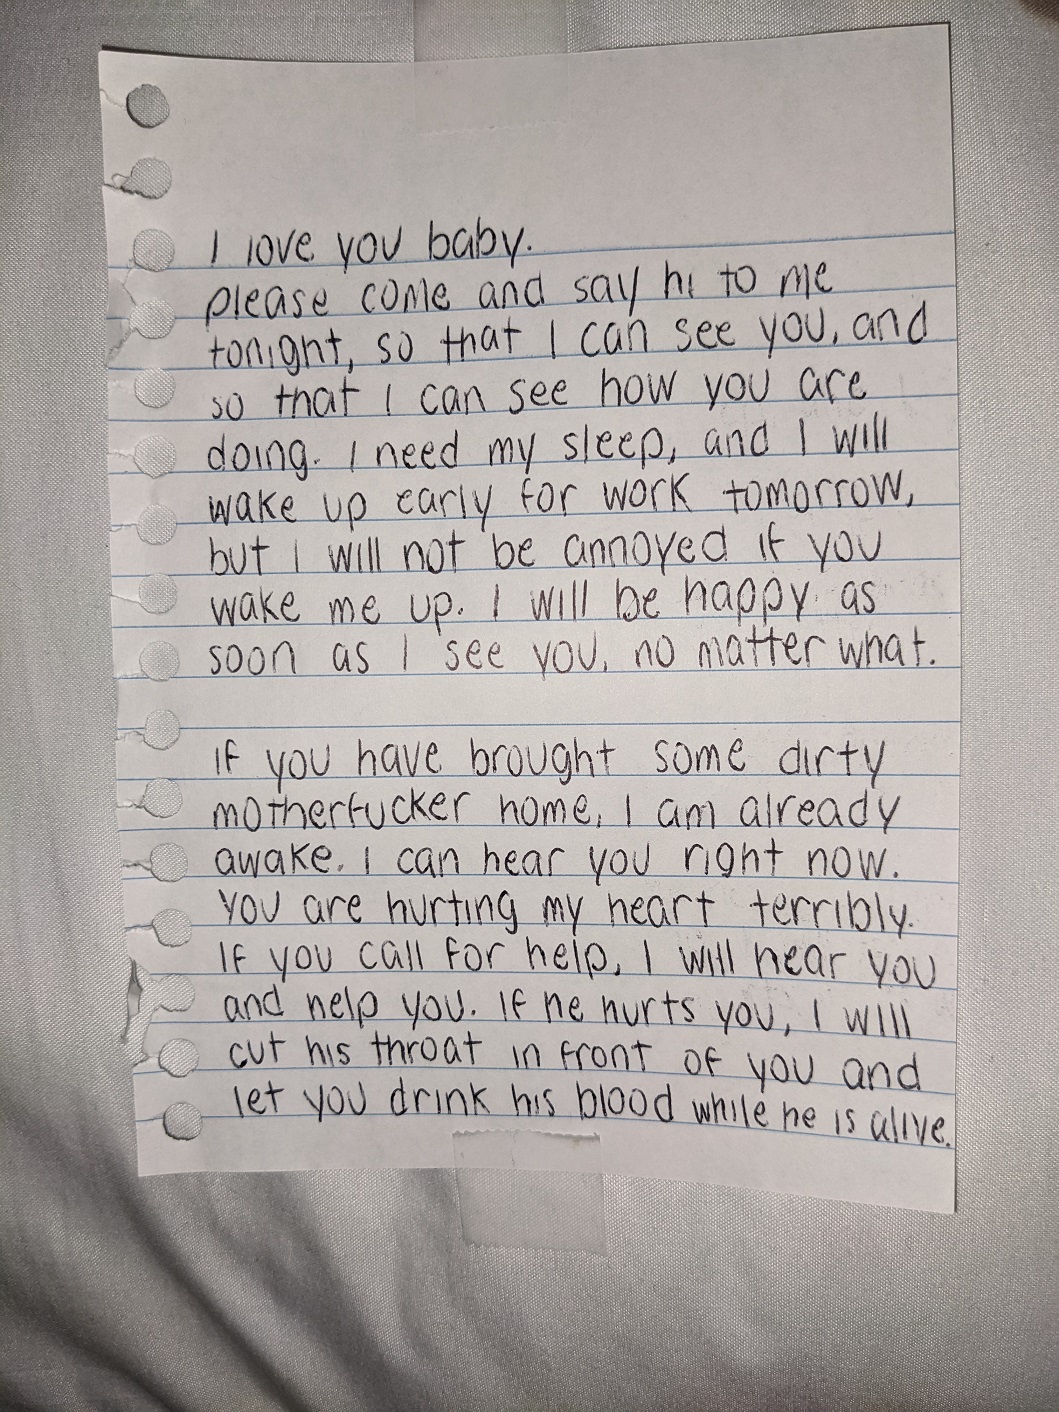 I love you baby.
please come and say hi to me
tonight, so that I can see you, and
so that I can see how you are
doing. I need my sleep, and I will
wake up early for work tomorrow,
but I will not be annoyed if you
wake me up. I will be happy as
soon as I see you, no matter what.
If you have brought some dirty
motherfucker home, I am already
awake. I can hear you right now.
You are hurting my heart terribly.
If you call for help, I will hear you
and help you. If he hurts you, I will
cut his throat in front of you and
let you drink his blood while he is alive.